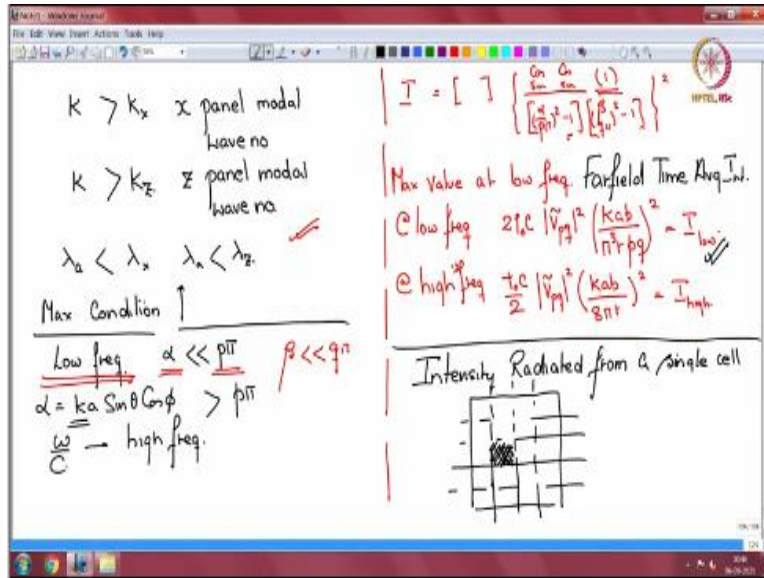 Note1 - Windows Journal
File Edit View Insert Actions Tools Help
K > Kx x panel modal
wave no
K > Kz. z panel modal
wave no.
λa < λx λa < λz.
Max Condition ↑
Low freq. α << pπ β << qπ
α = ka Sinθ Cosϕ > pπ
ω/C → high freq.
I = [ ] { Cos Cos (1)
Sin Sin
[(α/pπ)² - 1] [(β/qπ)² - 1] }²
Max Value at low freq. Farfield Time Avg Int.
@ low freq 2ρ₀C |Ṽpq|² (kab/π³rpq)² = I low.
@ high freq ρ₀C/2 |Ṽpq|² (kab/8πr)² = I high.
Intensity Radiated from a single cell
NPTEL, IISc